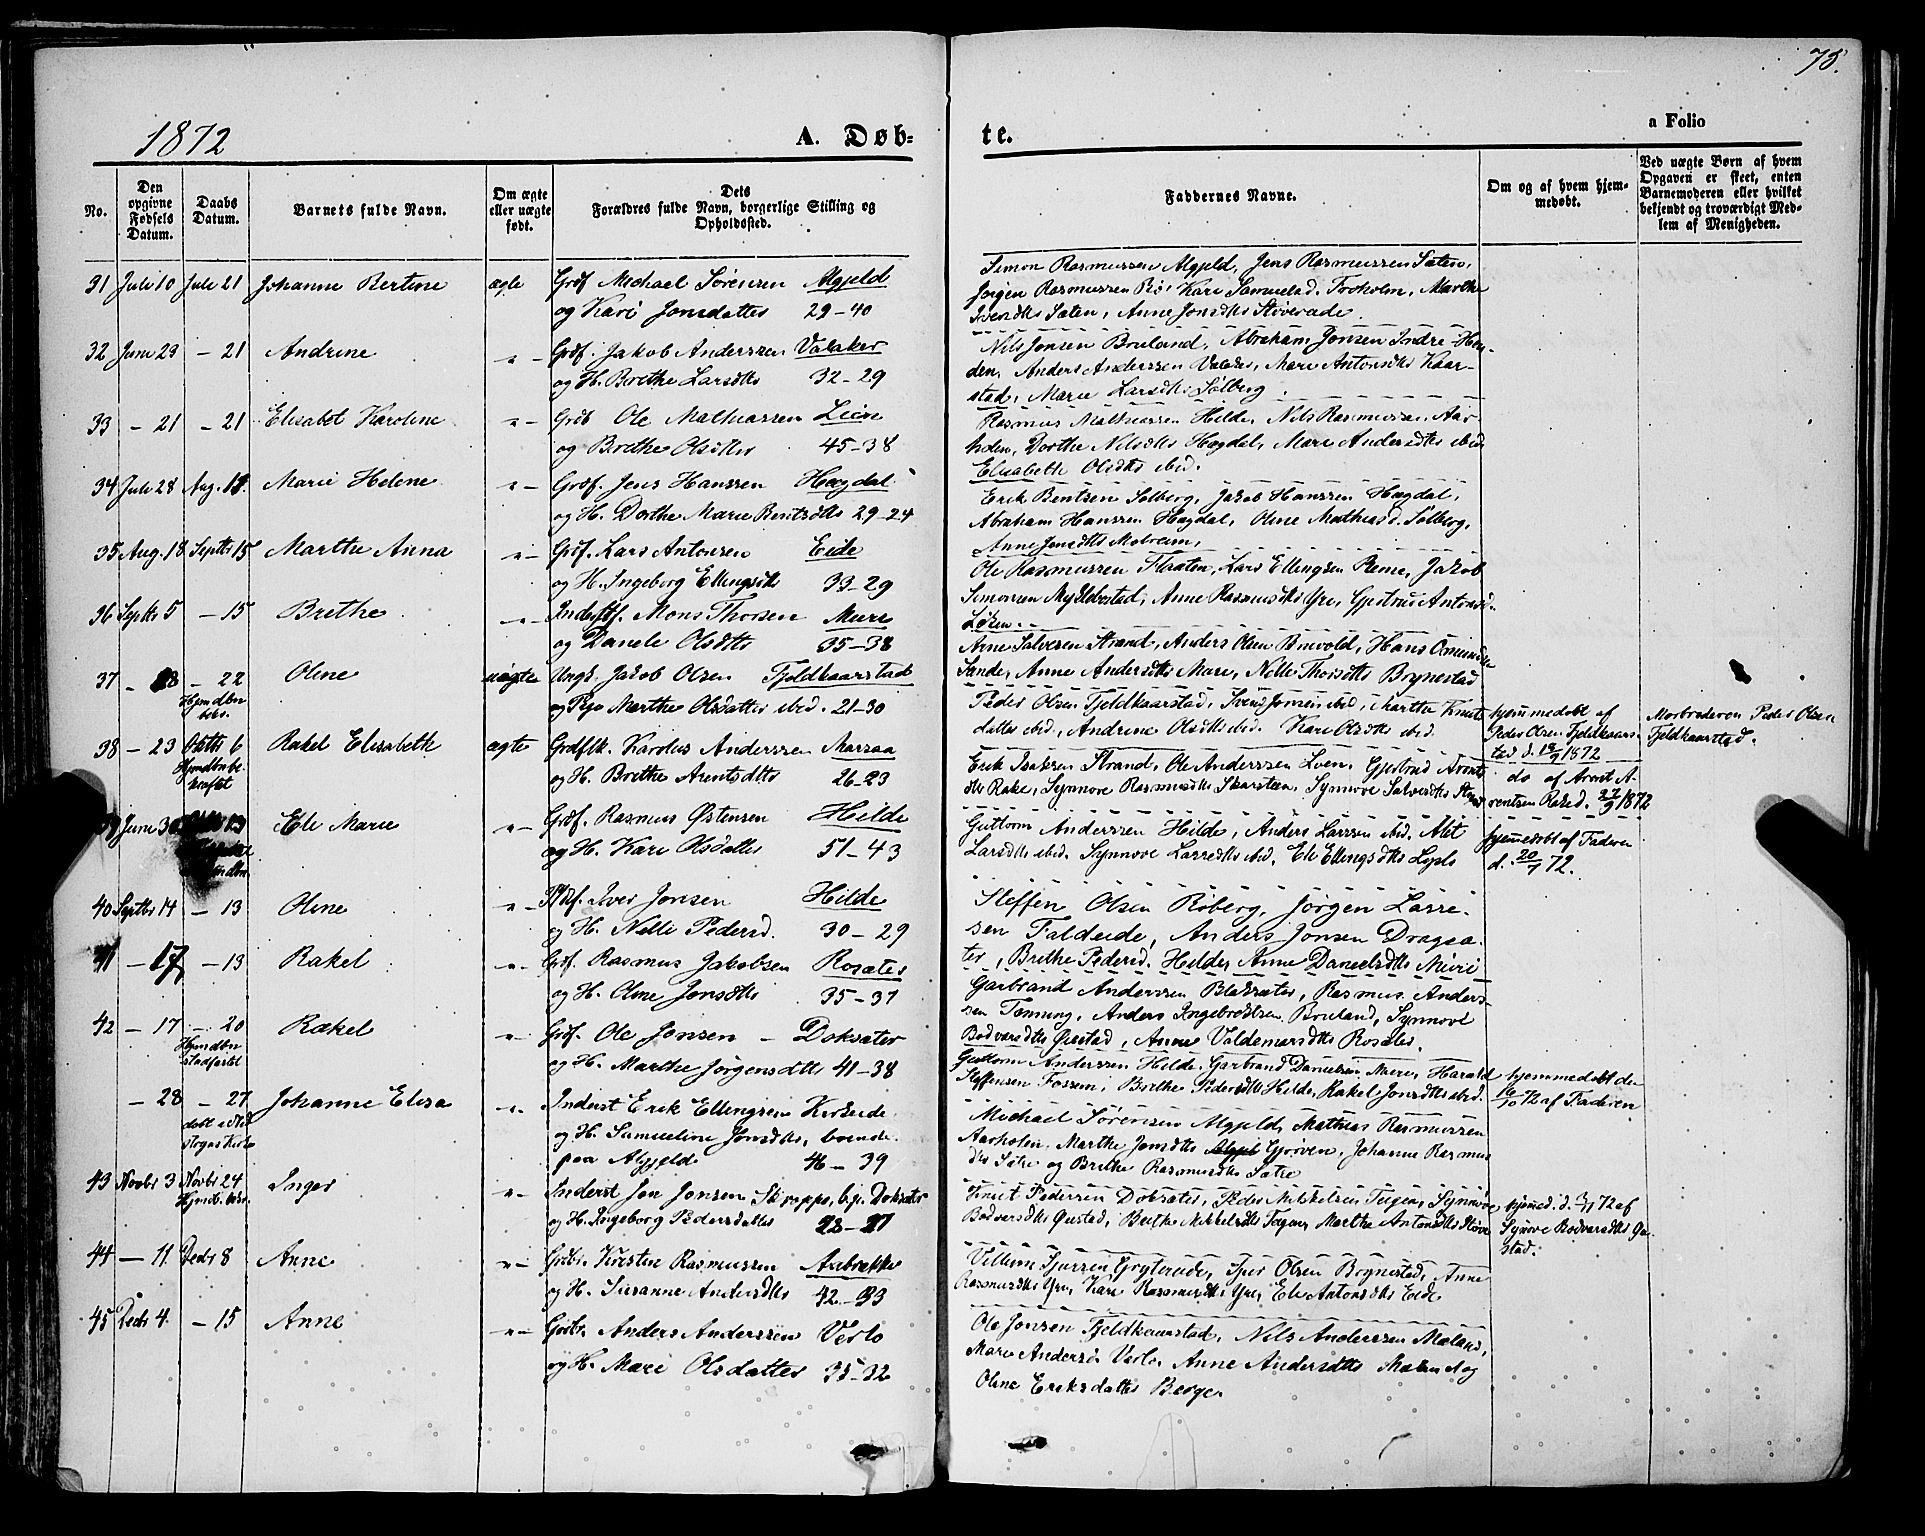 75.
1872
A. Døb-
te.
a Folio
No.
Den opgivne Fødsels Datum.
Daabs Datum.
Barnets fulde Navn.
Om ægte eller uægte født.
Dets
Forældres fulde Navn, borgerlige Stilling og
Opholdssted.
Faddernes Navne.
Om og af hvem hjem-
medøbt.
Ved uægte Børn af hvem
Opgaven er skeet, enten
Barnemoderen eller hvilket
bekjendt og troværdigt Med-
lem af Menigheden.
31 Juli 10 Juli 21 Johanne Bertine ægte Grdf Michael Sörensen Algjeld
og Kari Jonsdatter 29-40
Simon Rasmussen Algjeld, Jens Rasmussen Sæten,
Jørgen Rasmussen Bö, Kari Samuelsd. Froholm, Marthe
Iversdtr Sæten, Anne Jonsdtr Störerade.
32 Juni 29 - 21 Andrine -"- Grdf. Jakob Anderssen Valaker
og H. Brethe Larsdtr 32-29
Nils Jonsen Bruland, Abraham Jonsen Indre-Hen-
den, Anders Anderssen Valaker, Mari Antonsdtr Kaar-
stad, Marie Larsdtr Sølberg.
33 - 21 - 21 Elisabet Karoline -"- Grdb Ole Mathiassen Leien
og Brethe Olsdtter 45-38
Rasmus Mathiassen Hilde, Nils Rasmussen Aar-
holen, Dorthe Nilsdtr Hægdal, Mari Andersdtr ibid
Elisabeth Olsdtr ibid.
34 Juli 28 Aug. 11. Marie Helene -"- Grdf. Jens Hanssen Hægdal
og H. Dorthe Marie Bentsdtr 29-24
Erik Bentsen Sølberg, Jakob Hanssen Hægdal,
Abraham Hanssen Hægdal, Oline Mathiasd. Sølberg,
Anne Jonsdtr Molvein,
35 Aug. 18 Septbr 15 Marthe Anna -"- Grdf. Lars Antonsen Eide
og H. Ingeborg Ellingsdtr 33-29
Ole Rasmussen Flaaten, Lars Ellingsen Reme, Jakob
Simonsen Myklebostad, Anne Rasmusdtr Yre, Gjertrud Antonsd.
Löken.
36 Septbr 5 - 15 Brethe -"- Inderstf. Mons Thorsen Mure
og Danele Olsdtr 35-38
Arne Salvesen Strand, Anders Olsen Brøvold, Hans Osmundsen
Sande, Anne Andersdtr Mure, Nille Thorsdtr Brynestad
37 - 18 - 22 Oline uægte Ungk. Jakob Olsen Fjeldkaarstad
Hjmdbn
bekr.
og Pige Marthe Olsdatter ibid. 21-30
Peder Olsen Fjeldkaarstad, Svend Jonsen ibid, Marthe Knuts-
datter ibid, Andrine Olsdtr ibid. Kari Olsdtr ibid.
hjemmedobt af
Peder Olsen Fjeldkaars-
tad d. 19/9 1872
Morbroderen Peder Olsen
Fjeldkaarstad.
38 - 23 Octbr 6 Rakel Elisabeth ægte Grdflk. Karolus Anderssen Marsaa
Hjmdbn be-
kræftet
og H. Brethe Arentsdtr 26-23
Erik Isaksen Strand, Ole Anderssen Loen, Gjertrud Arents-
dtr Rake, Synnove Rasmusdtr Skarsteen, Synnove Salvesdtr Strand
do af Arent A-
rentsen Rake d. 27/9 1872
39 Juni 30 13 Eli Marie -"- Grdf. Rasmus Østensen Hilde
og H. Kari Olsdatter 51-43
Guttorm Anderssen Hilde, Anders Larssen ibid, Alet
Larsdtr ibid. Synnove Larsedtr ibid, Eli Ellingsdtr Lyslo
hjemmedobt af Faderen
d. 20/7 72.
40 Septbr 14 - 13 Oline -"- Grdf. Iver Jonsen Hilde
og H. Nilli Pedersd. 30-29
Steffen Olsen Röberg, Jörgen Larse-
sen Faldeide, Anders Jonsen Dragsa-
ter, Brithe Pedersd. Hilder Anne Danielsdtr Meire
41 - 17 - 13 Rakel -"- Grdf. Rasmus Jakobsen Rosæter
og H. Oline Jonsdtr 35-37
Garbrand Anderssen Blaksæter, Rasmus Anders-
sen Tenning, Anders Ingebrektsen Bruland, Synnove
Bodvarsdtr Qrestad, Anne Valdemarsdtr Rosæter.
42 - 17 - 20 Rakel -"- Grdf. Ole Jonsen - Doksæter
Hjmdbn
stadfæstet
og H. Marthe Jörgensdtr 41-38
Guttorm Anderssen Hilde, Garbrand Danielsen Meire, Harald
Steffensen Fossem, Brithe Pedersdtr Hilde, Rakel Jonsdtr ibid.
hjemmedobt den
6/10 72 af Faderen
- 28 - 27 Johanne Elisa -"- Inderst Erik Ellingsen Kirkeide
dobt i Ned-
stryns Kirke
og H. Samueline Jonsdtr, boende
paa Algjeld 46-39
Michael Sörensen Algjeld, Mathias Rasmussen
Aarholen, Marthe Jonsdtr Gjörven, Johanne Rasmus-
dtr Sætre og Brithe Rasmusdtr Sætre
43 Novbr 3 Novbr 24 Inger -"- Inderst Jon Jonsen Skreppe, b.p. Doksæter
Hjmdb. bekr.
og H. Ingeborg Pedersdatter 28-27
Knut Pedersen Doksæter, Peder Mikkelsen Tugen, Synnöve
Bodvarsdtr Qvstad, Brithe Mikkelsdtr Tugen, Marthe Antonsdtr Störe
hjemd. d. 7/11 72 af
Synove Bodvarsdtr Qv-
stad.
44 - 11 Decbr 8 Anne -"- Grdbr. Kirsten Rasmussen Aabrekke
og H. Susanne Andersdtr 42-33
Villum Sjursen Gryterude, Sjur Olsen Brynestad, Anne
Rasmusdtr Yre, Kari Rasmusdtr Yre, Eli Antonsdtr Eide
45 Decbr 4. - 15 Anne -"- Grdbr. Anders Anderssen Verlo
og H. Mari Olsdatter 35-32
Ole Jonsen Fjeldkaarstad, Nils Anderssen Mæland,
Mari Andersd. Verlo, Anne Andersdtr Mæland og
Oline Eriksdatter Berge